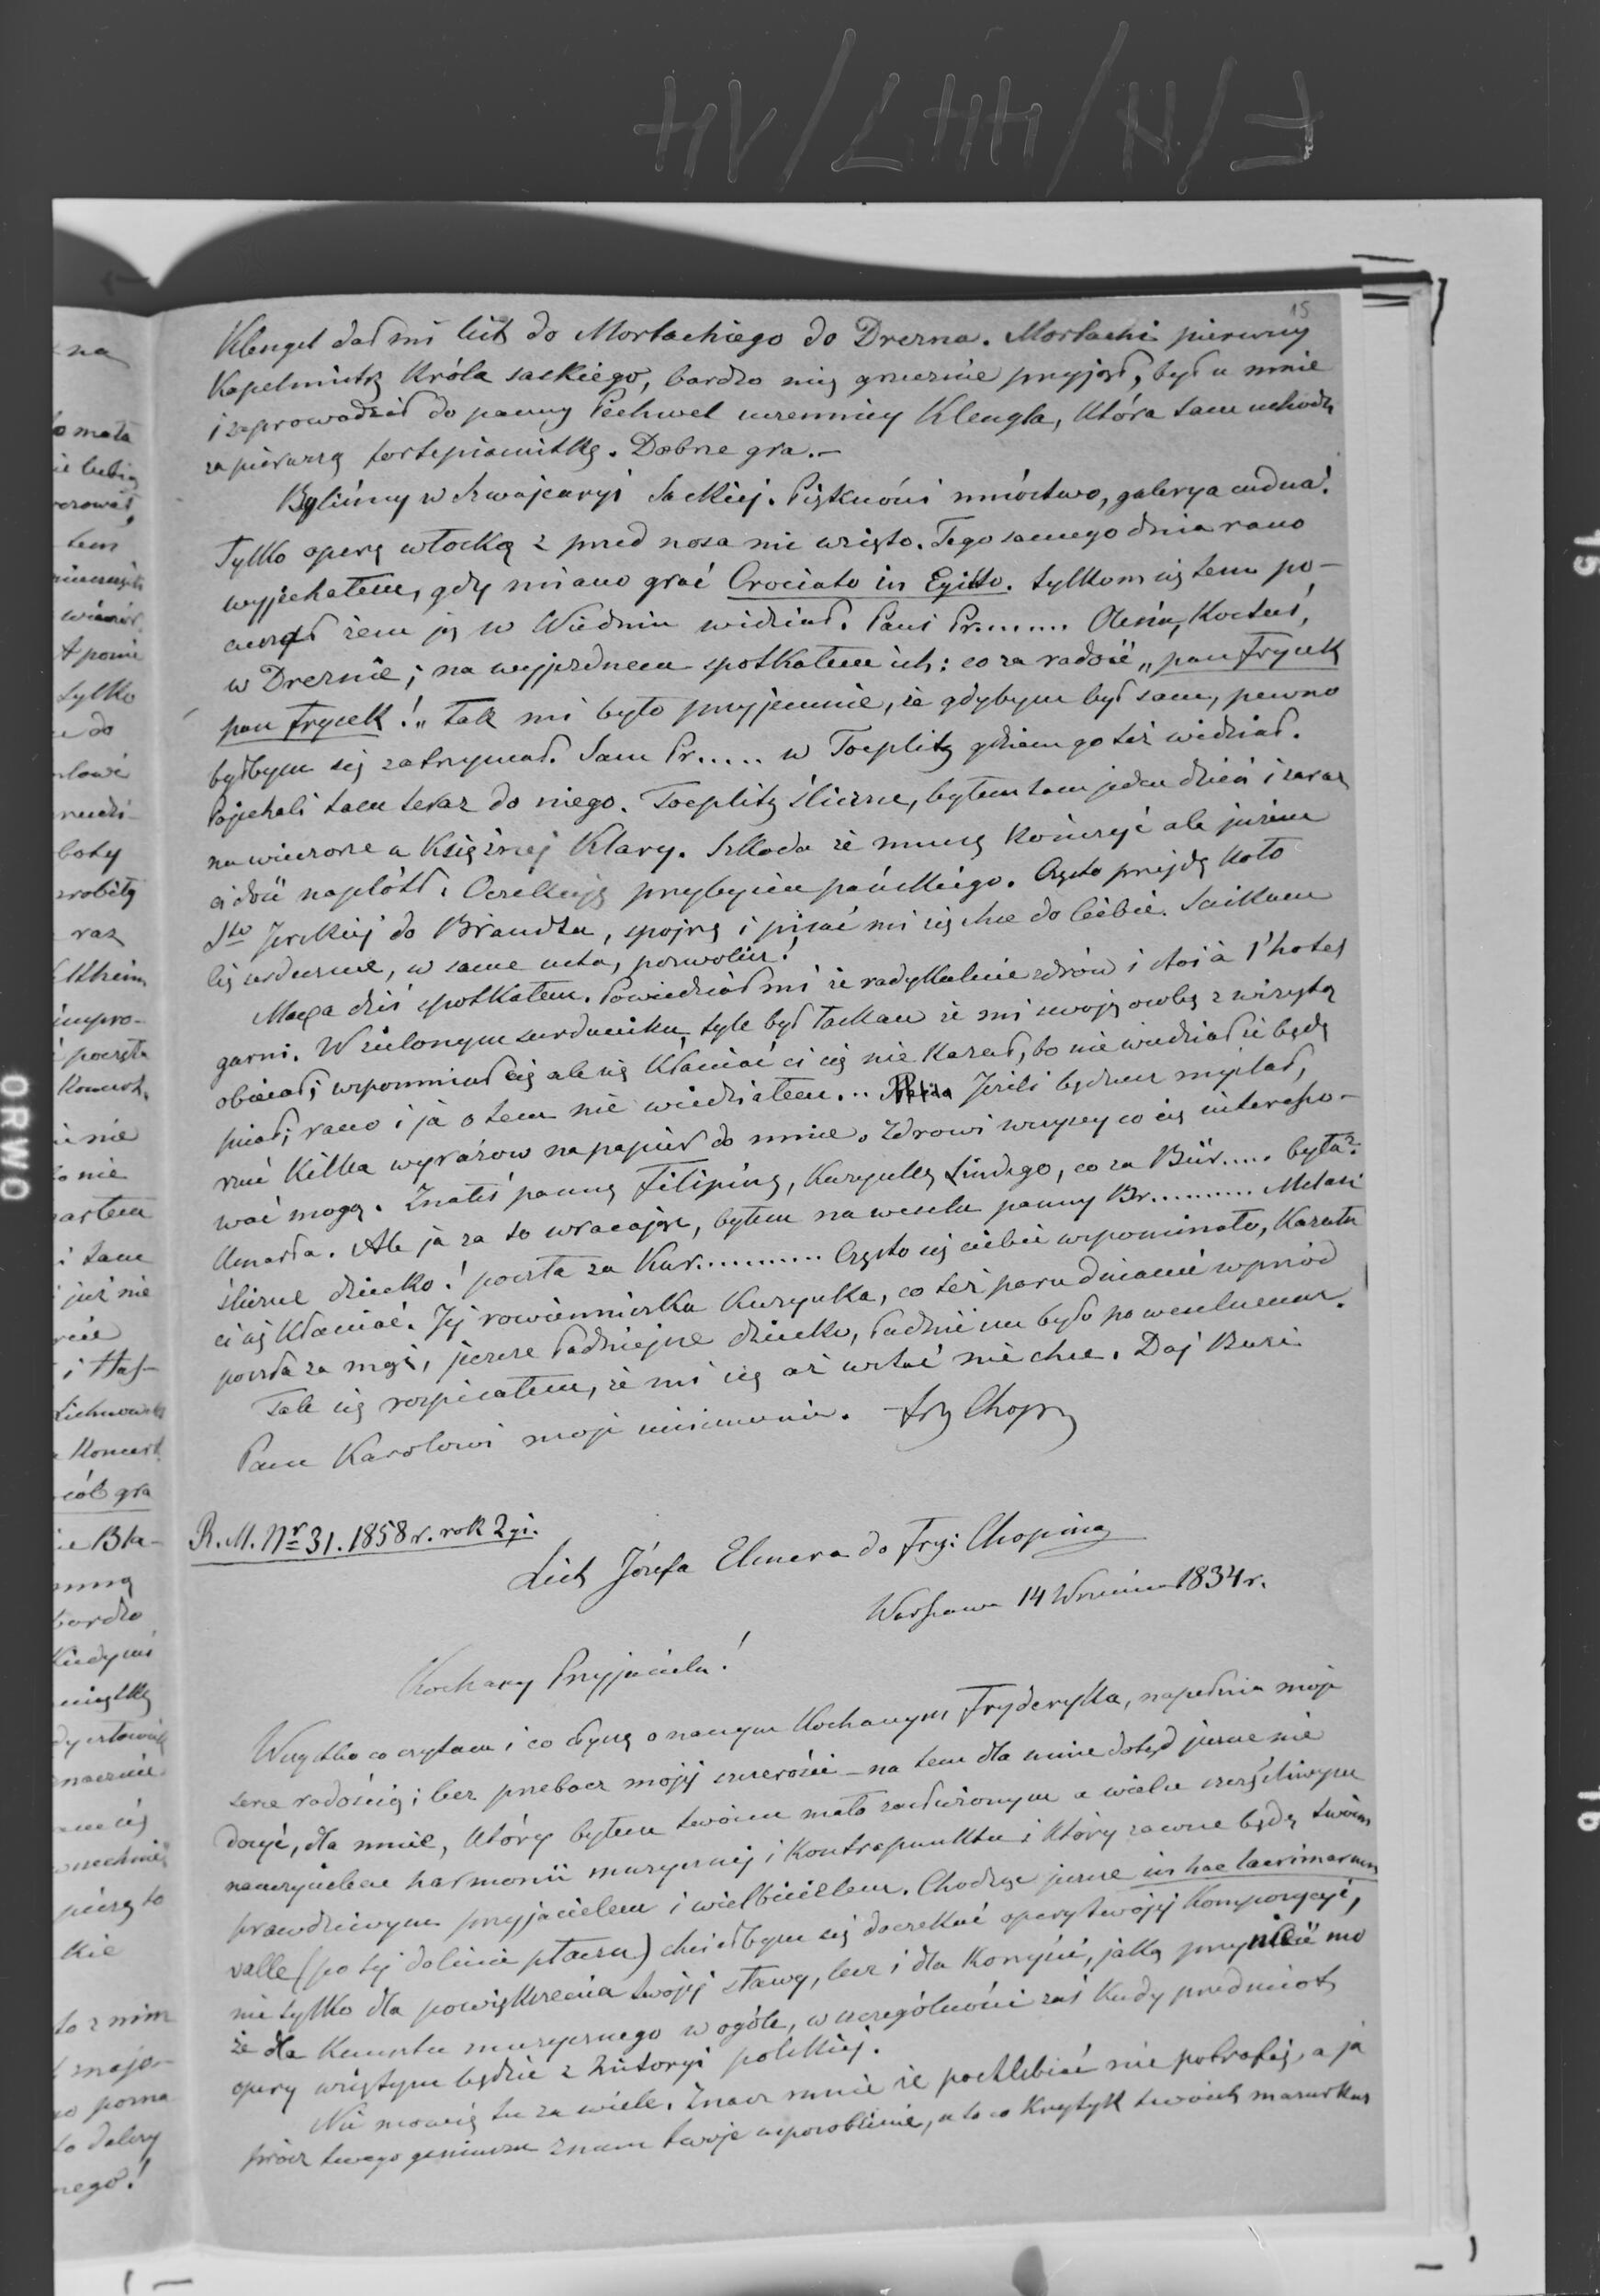 F/N/447/14
15
Klengel dał mi list do Morlachiego do Drezna. Morlachi pierwszy
Kapelmistrz Króla saskiego, bardzo mię grzecznie przyjął, był u mnie
i zaprowadził do panny Pechwel uczennicy Klengla, która tam uchodzi
za pierwszą fortepianistkę. Dobrze gra.—
Byliśmy w Szwajcaryi Saskiej. Piękności mnóstwo, galerya cudna!
Tylko operę włoską z przed nosa mi wzięto. Tego samego dnia rano
wyjechałem, gdy miano grać Crociato in Egitto. tylkom się tem po-
cieszał żem ją w Wiedniu widział. Pani Pr....... Olesia, Kostuś,
w Dreznie; na wyjezdnem spotkałem ich: co za radość „pan Frycek
pan Frycek!„ tak mi było przyjemnie, że gdybym był sam, pewno
byłbym się zatrzymał. Sam Pr..... w Toeplitz gdziem go też widział.
Pojechali tam teraz do niego. Toeplitz śliczne, byłem tam jeden dzień i zaraz
na wieczorze u Księżnej Klary. Szkoda że muszę kończyć ale jużem
ci dość naplótł. Oczekuję przybycia pańskiego. Często przejdę koło
Sto Jerskiej do Brandta, spojrzę i pisać mi się chce do Ciebie. Sciskam
Cię serdecznie, w same usta, pozwolisz!
Maxa dziś spotkałem. Powiedział mi że radykalnie zdrów i stoi à l'hotel
garni. W zielonym surduciku, tyle był łaskaw że mi swoją osobą z wizytą
obiecał; wspomniał cię ale się kłaniać ci się nie kazał, bo nie wiedział że będę
pisał; rano i ja o tem nie wiedziałem... Jeżeli będziesz myślał,
rzuć kilka wyrazow na papier do mnie. Zdrowi wszyscy co cię interesso-
wać mogą. Znałeś pannę Filipinę, Kuzynkę Lindego, co za Bür..... była?
Umarła. Ale ja za to wracając, byłem na weselu panny Br.......... Melasi
śliczne dziecko! poszła za Kur........... Często się ciebie wspominało, kazała
ci się kłaniać. Jej rowienniczka kuzynka, co też paru dniami wprzód
poszła za mąż, jeszcze ładniejsze dziecko, ładnie im było po weselnemu.
Tak się rozpisałem, że mi się aż wstać nie chce. Daj Buzi
Panu Karolowi moje uszanowanie. Fry Chopin
R. M. Nr 31. 1858 r. rok 2gi.
List Józefa Elsnera do Fry: Chopina
Warszawa 14 Września 1834 r.
Kochany Przyjacielu!
Wszystko co czytam i co słyszę o naszym kochanym Fryderyku, napełnia moje
serce radością; lecz przebacz mojej szczerości — na tem dla mnie dotąd jeszcze nie
dosyć, dla mnie, który byłem twoim mało zasłużonym a wiele szczęśliwym
nauczycielem harmonii muzycznej i Kontrapunktu i który zawsze będę twoim
prawdziwym przyjacielem i wielbicielem. Chodząc jeszcze in hac lacrimarum
valle (po tej dolinie płaczu) chciałbym się doczekać opery twojej kompozycyi,
nie tylko dla powiększenia twojej sławy, lecz i dla korzyści, jaką przynieść mo
że dla kunsztu muzycznego w ogóle, w szczególności zaś kiedy przedmiot
opery wziętym będzie z historyi polskiej.
Nie mowię tu za wiele. Znasz mnie że pochlebiać nie potrafię, a ja
prócz twego geniuszu znam twoje usposobienie, a to co Krytyk twoich mazurkow
ORWO
15
16